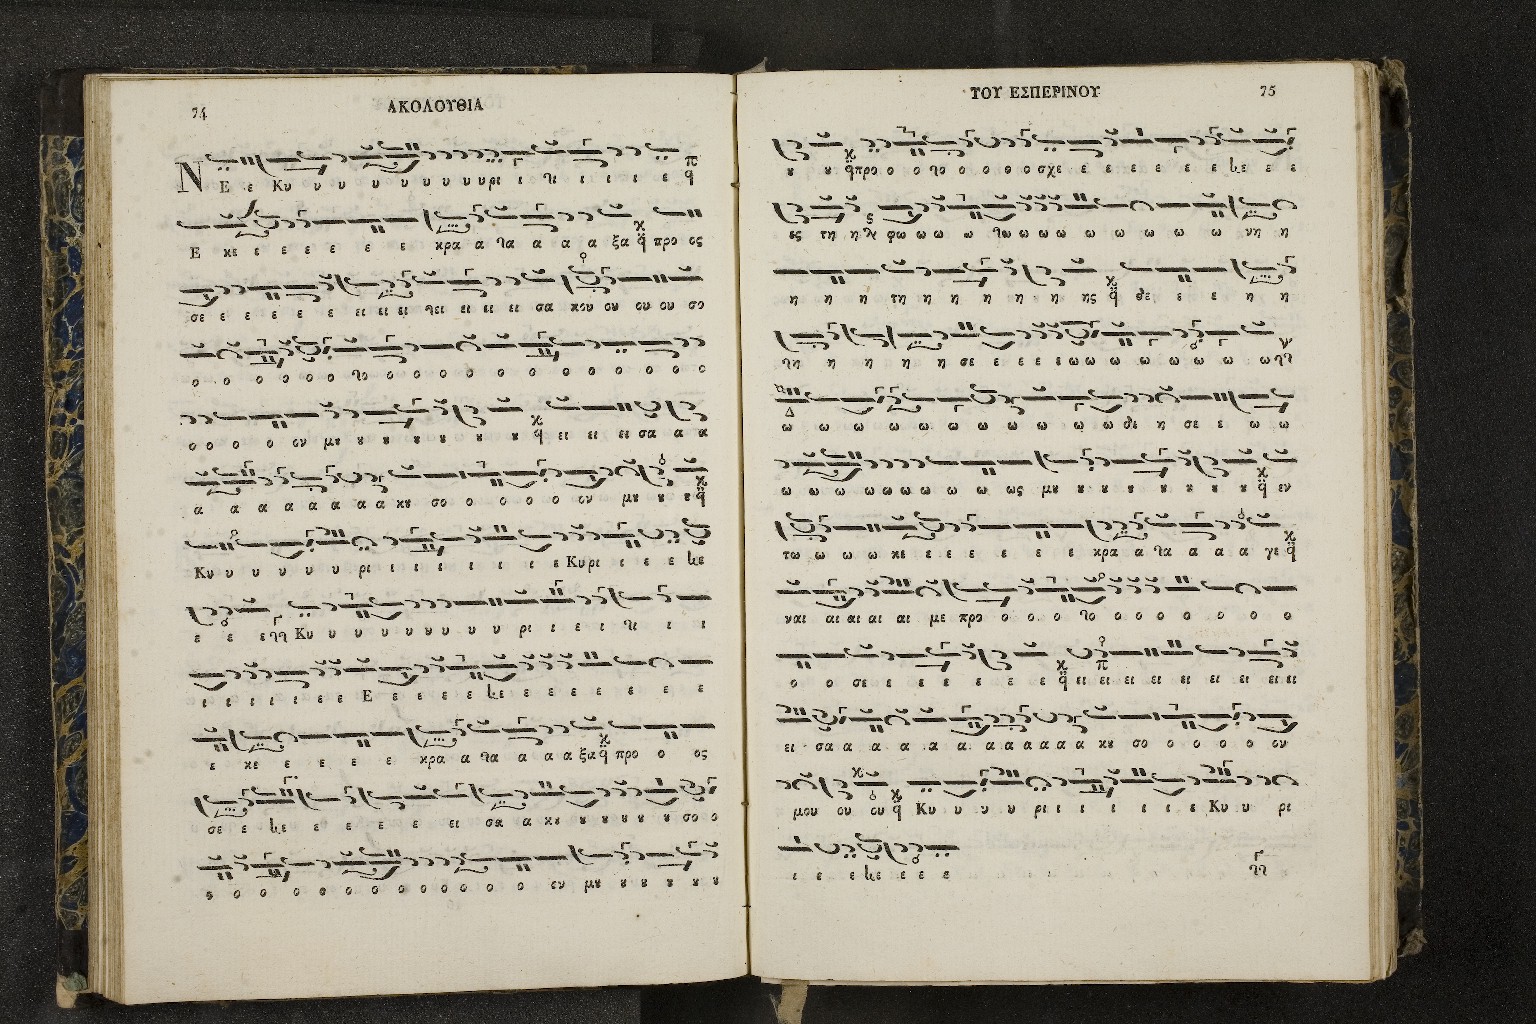 74 ΑΚΟΛΟΥΘΙΑ
Ν Ε ε Κυ υ υ υ υ υ υ υ υ υρι ι ι ι ι ι ε
Ε κε ε ε ε ε ε κρα α α α α α ξα προ ος
σε ε ε ε ε ε ει ει ει ει ει ει σα κου ου ου ου σο
ο ο ο ο ο ο ο ο ο ο ο ο ο ο ο ο ο
ο ο ο ο ον μȣ ȣ ȣ ȣ ȣ ȣ ȣ ει ει ει σα α α
α α α α α α α κȣ σο ο ο ο ο ον μȣ ȣ ȣ
Κυ υ υ υ υ υ ρι ι ε ι ι ι ι ε Κυρι ι ε ε
ε ε ε Κυ υ υ υ υ υ υ υ υ ρι ι ε ι ι ι
ι ι ι ι ι ε ε Ε ε ε ε ε ε ε ε ε ε ε ε
ε κε ε ε ε ε κρα α α α α ξα προ ο ος
σε ε ε ε ε ε ε ει σα α κȣ ȣ ȣ ȣ ȣ ȣ σο ο
ο ο ο ο ο ο ο ο ο ο ο ο ον μȣ ȣ ȣ ȣ ȣ
ΤΟΥ ΕΣΠΕΡΙΝΟΥ 75
ȣ ȣ προ ο ο ο ο ο ο ο σχε ε ε ε ε ε ε ε ε ε
ες τη η φω ω ω ω ω ω ω ω ω ω ω ω νη η
η η η τη η η η η η ης ε ε η η
η η η η η σε ε ε ε ε ω ω ω ω ω ω ω ω
ω ω ω ω ω ω ω ω ω ω ω η σε ε ω ω
ω ω ω ω ω ω ω ω ω ως μȣ ȣ ȣ ȣ ȣ ȣ ȣ ȣ εν
τω ω ω ω κε ε ε ε ε ε ε κρα α α α α γε
ναι αι αι αι αι με προ ο ο ο ο ο ο ο ο ο ο
ο ο σε ε ε ε ε ε ε ει ει ει ει ει ει ει ει ει
ει σα α α α α α α α α α α α α κȣ σο ο ο ο ο ον
μου ου ου Κυ υ υ υ υ ρι ι ι ι ι ι ε Κυ υ ρι
ι ε ε ε ε ε